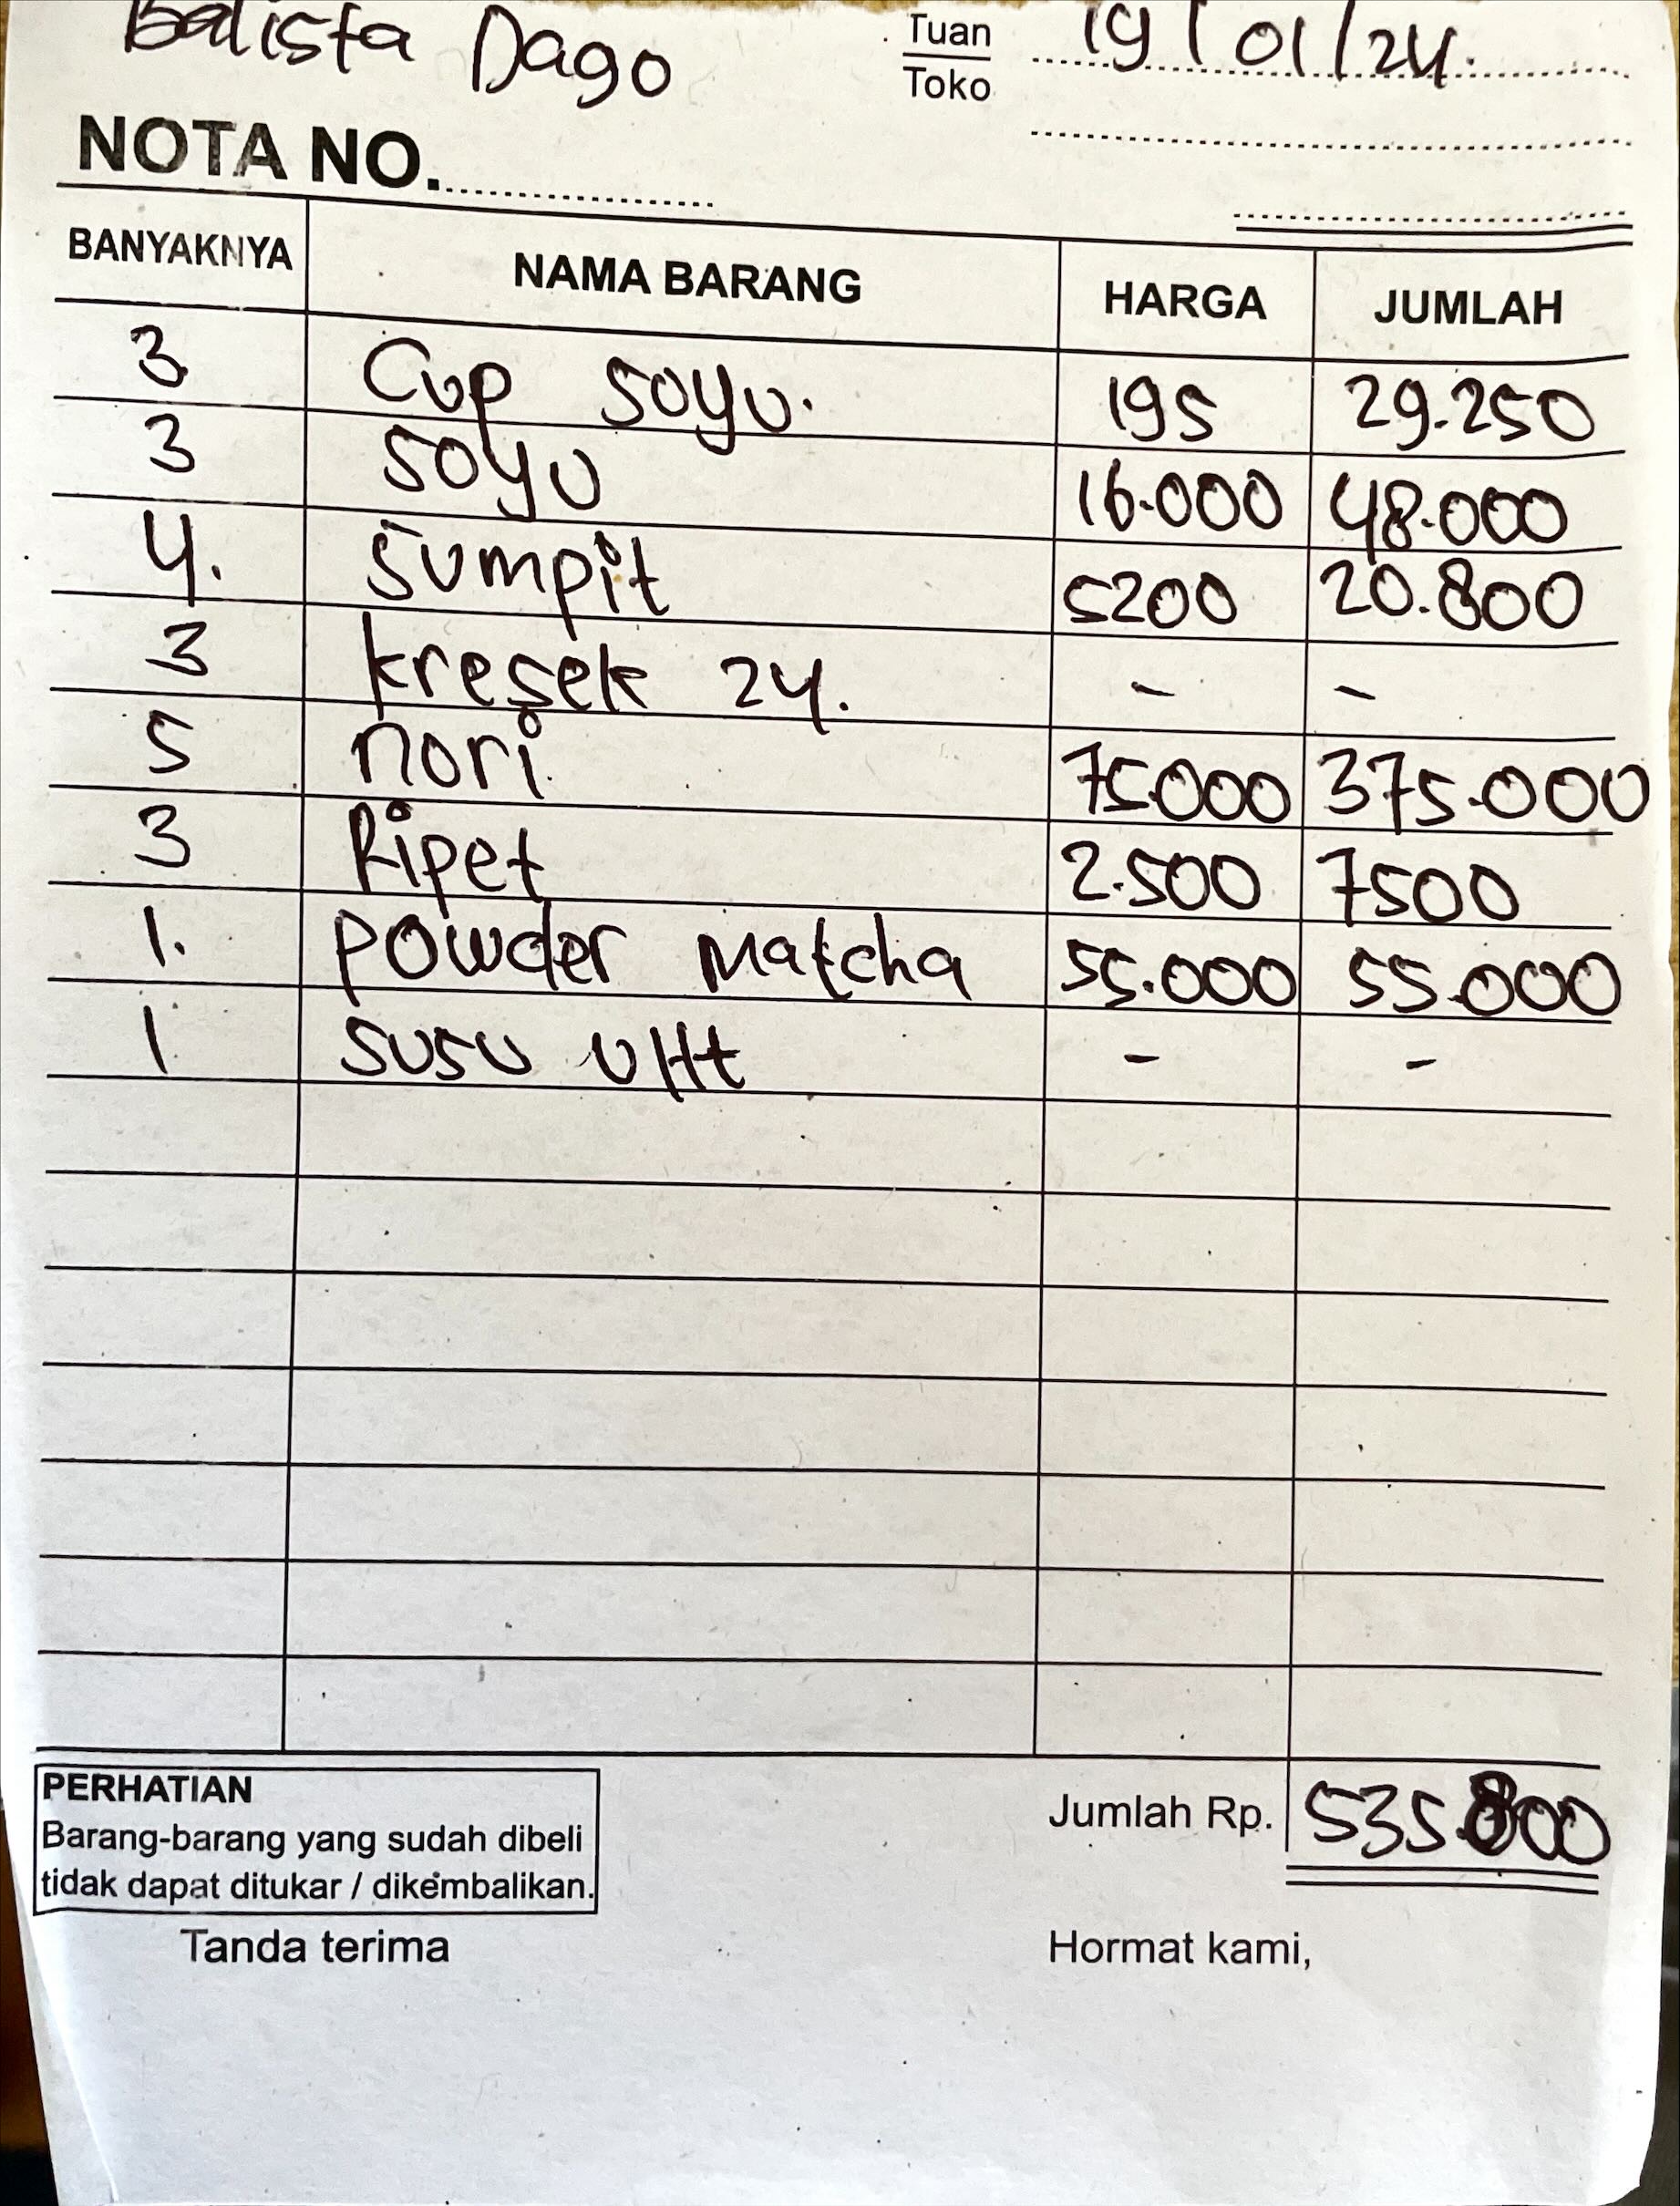 Balista Dago
Tuan
Toko
19/01/24.
NOTA NO.
BANYAKNYA NAMA BARANG HARGA JUMLAH
3 Cup soyu. 195 29.250
3 soyu 16.000 48.000
4. sumpit 5200 20.800
3 kresek 24. - -
5 nori 75.000 375.000
3 Pipet 2.500 7500
1. powder Matcha 55.000 55.000
1 susu UHt - -
PERHATIAN
Barang-barang yang sudah dibeli
tidak dapat ditukar / dikembalikan.
Jumlah Rp. 535.800
Tanda terima Hormat kami,